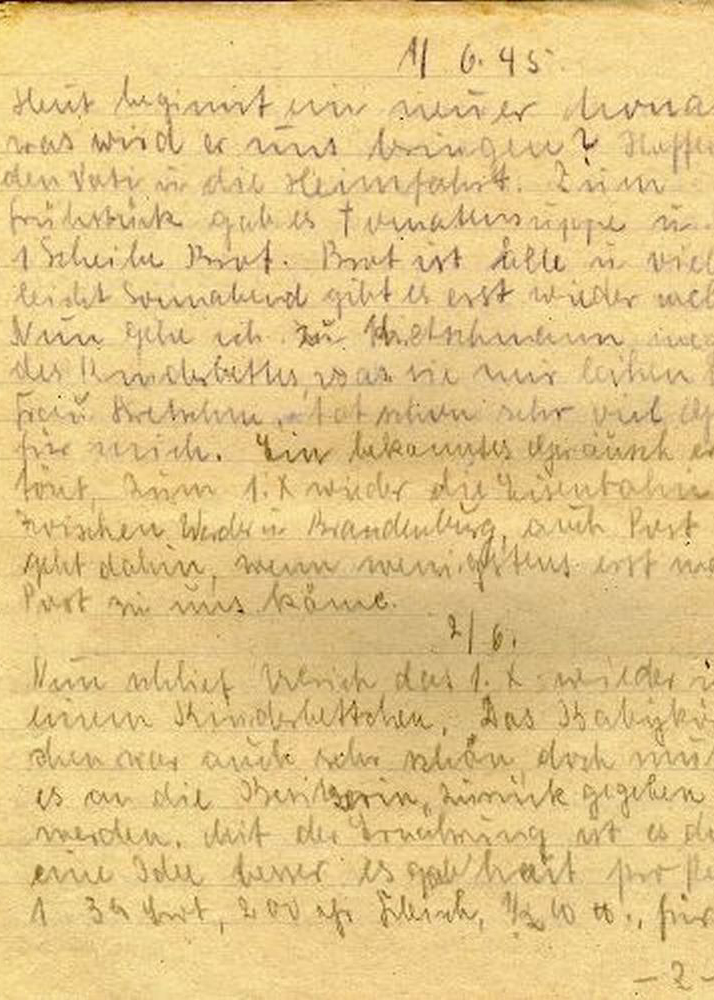 1/ 6. 45.
Heut beginnt ein neuer Mona
was wird er uns bringen? Hoffe
den Vati u die Heimfahrt. Zum
Frühstück gab es Tomatensuppe u.
1 Scheibe Brot. Brot ist alle u viel
leicht Sonnabend gibt es erst wieder wel
Nun gehe ich zu Kretschmann weg
des Kinderbettes, was sie mir leihen
Frau Kretschm. tat schon sehr viel
für mich. Ein bekanntes Geräusch er
tönt, zum 1. X wieder die Eisenbahn
zwischen Werder u Brandenburg, auch Post
geht dahin, wenn wenigstens erst ma
Post zu uns käme.
2/ 6.
Nun schlief Ulrich das 1. X wieder i
einem Kinderbettchen. Das Babykö
chen war auch sehr schön, doch mu
es an die Besitzerin zurück gegeben
werden. Mit der Ernährung ist es do
eine Idee besser es gab heut pro
1 Brot, 200 gr Fleisch, für
- 2 -